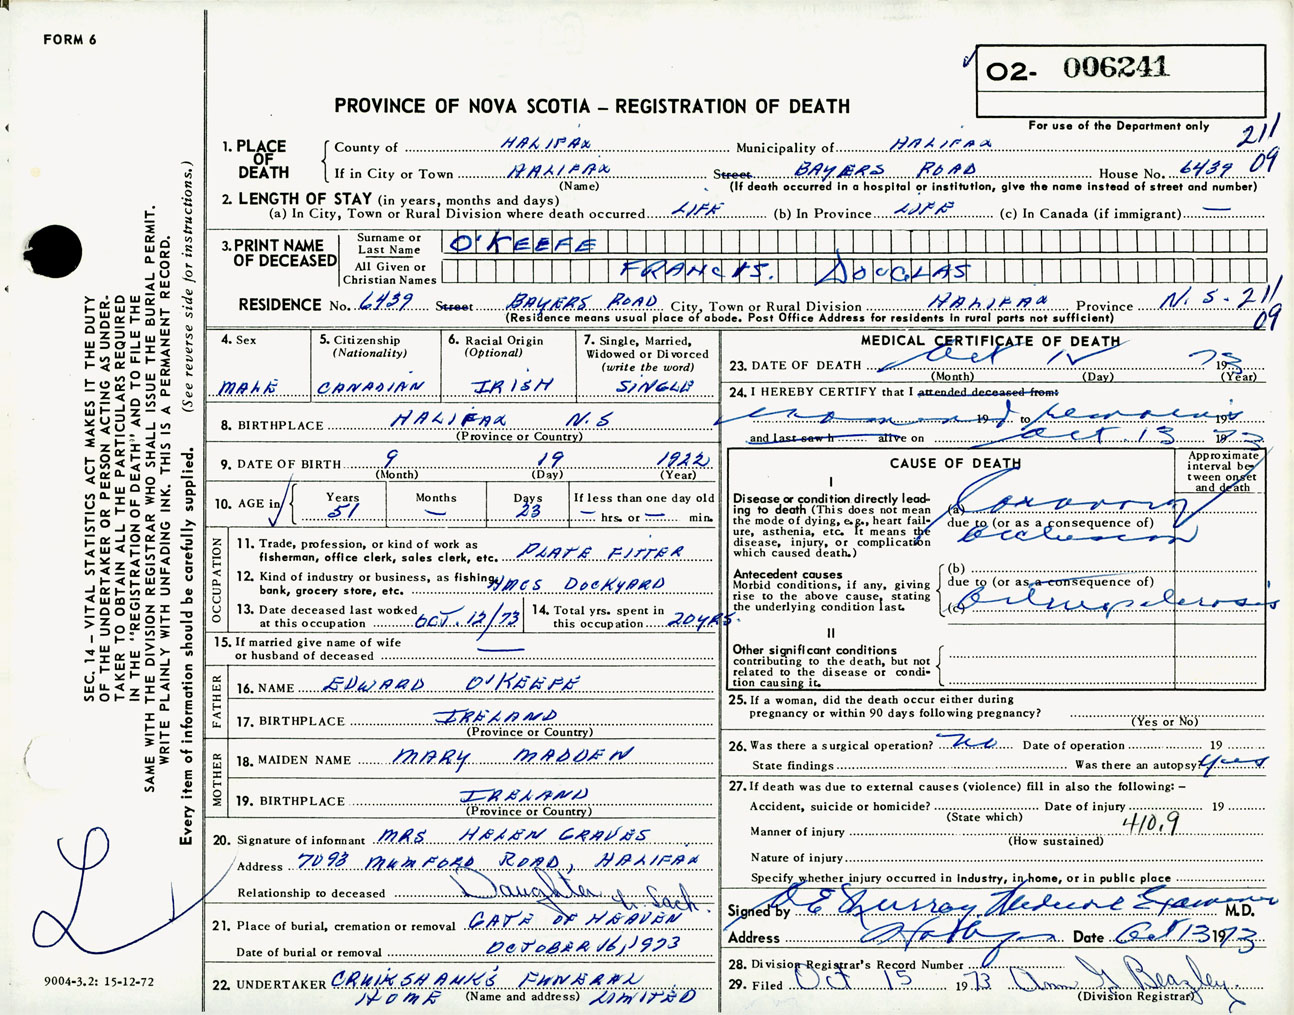 FORM 6
O2- 006241
PROVINCE OF NOVA SCOTIA – REGISTRATION OF DEATH
For use of the Department only
211
09
1. PLACE OF DEATH
County of HALIFAX Municipality of HALIFAX
If in City or Town HALIFAX Street BAYERS ROAD House No. 6439
(Name) (If death occurred in a hospital or institution, give the name instead of street and number)
2. LENGTH OF STAY (in years, months and days)
(a) In City, Town or Rural Division where death occurred LIFE (b) In Province LIFE (c) In Canada (if immigrant) —
3. PRINT NAME OF DECEASED
Surname or Last Name O'KEEFE
All Given or Christian Names FRANCIS. DOUGLAS
RESIDENCE No. 6439 Street BAYERS ROAD City, Town or Rural Division HALIFAX Province N.S. 211
09
(Residence means usual place of abode. Post Office Address for residents in rural parts not sufficient)
4. Sex
MALE
5. Citizenship (Nationality)
CANADIAN
6. Racial Origin (Optional)
IRISH
7. Single, Married, Widowed or Divorced (write the word)
SINGLE
8. BIRTHPLACE HALIFAX N.S
(Province or Country)
9. DATE OF BIRTH 9 19 1922
(Month) (Day) (Year)
10. AGE in
Years 51
Months —
Days 23
If less than one day old
— hrs. or — min.
OCCUPATION
11. Trade, profession, or kind of work as fisherman, office clerk, sales clerk, etc. PLATE FITTER
12. Kind of industry or business, as fishing, bank, grocery store, etc. HMCS DOCKYARD
13. Date deceased last worked at this occupation OCT. 12/73
14. Total yrs. spent in this occupation 20 YRS.
15. If married give name of wife or husband of deceased —
FATHER
16. NAME EDWARD O'KEEFE
17. BIRTHPLACE IRELAND
(Province or Country)
MOTHER
18. MAIDEN NAME MARY MADDEN
19. BIRTHPLACE IRELAND
(Province or Country)
20. Signature of informant MRS HELEN GRAVES
Address 7093 MUMFORD ROAD, HALIFAX
Relationship to deceased Daughter
21. Place of burial, cremation or removal GATE OF HEAVEN
Date of burial or removal OCTOBER 16, 1973
22. UNDERTAKER CRUIKSHANK'S FUNERAL
HOME (Name and address) LIMITED
MEDICAL CERTIFICATE OF DEATH
23. DATE OF DEATH Oct 1973
(Month) (Day) (Year)
24. I HEREBY CERTIFY that I attended deceased from:
19 to 19
and last saw h alive on Oct. 13 1973
CAUSE OF DEATH
Approximate interval between onset and death
I
Disease or condition directly leading to death (This does not mean the mode of dying, e.g., heart failure, asthenia, etc. It means the disease, injury, or complication which caused death.)
(a) Coronary
due to (or as a consequence of)
occlusion
Antecedent causes
Morbid conditions, if any, giving rise to the above cause, stating the underlying condition last.
(b)
due to (or as a consequence of)
(c)
II
Other significant conditions
contributing to the death, but not related to the disease or condition causing it.
25. If a woman, did the death occur either during
pregnancy or within 90 days following pregnancy?
(Yes or No)
26. Was there a surgical operation? no Date of operation 19
State findings Was there an autopsy? yes
27. If death was due to external causes (violence) fill in also the following: –
Accident, suicide or homicide? Date of injury 19
(State which) 410.9
Manner of injury
(How sustained)
Nature of injury
Specify whether injury occurred in Industry, in home, or in public place
Signed by Murray Medical Examiner M.D.
Address Date Oct 13 1973
28. Division Registrar's Record Number
29. Filed Oct 15 1973 Ann G Beazley
(Division Registrar)
SEC. 14 – VITAL STATISTICS ACT MAKES IT THE DUTY
OF THE UNDERTAKER OR PERSON ACTING AS UNDER-
TAKER TO OBTAIN ALL THE PARTICULARS REQUIRED
IN THE "REGISTRATION OF DEATH" AND TO FILE THE
SAME WITH THE DIVISION REGISTRAR WHO SHALL ISSUE THE BURIAL PERMIT.
WRITE PLAINLY WITH UNFADING INK. THIS IS A PERMANENT RECORD.
Every item of information should be carefully supplied. (See reverse side for instructions.)
9004-3.2: 15-12-72